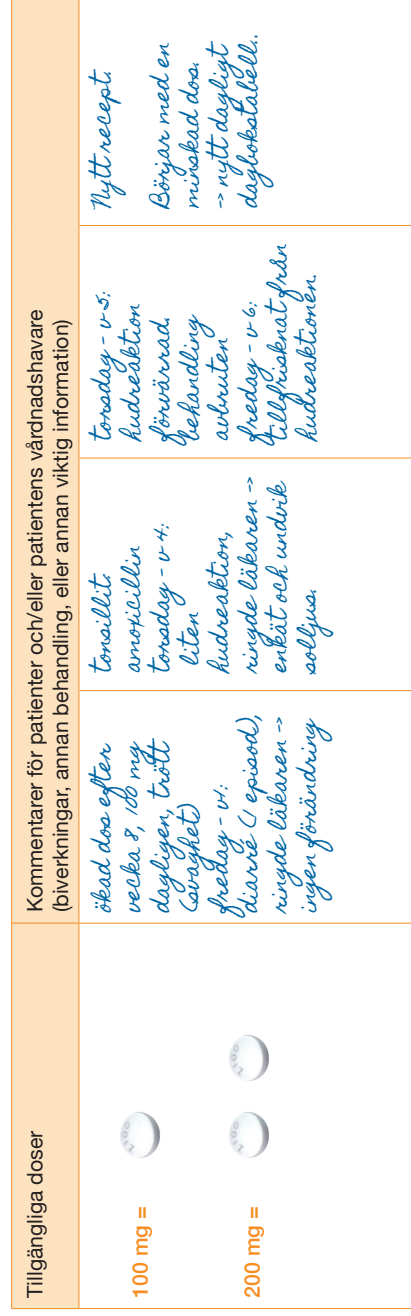 Tillgängliga doser
100 mg =
200 mg =
Kommentarer för patienter och/eller patientens vårdnadshavare
(biverkningar, annan behandling, eller annan viktig information)
ökad dos efter
vecka 8, 100 mg
dagligen, trött
(svaghet)
fredag - v1:
diarré (1 episod),
ringde läkaren ->
ingen förändring
tonsillit:
amoxicillin
torsdag - v 4:
liten
hudreaktion,
ringde läkaren ->
enkät och undvik
solljus.
torsdag - v 5:
hudreaktion
förvärrad.
behandling
avbruten
fredag - v 6:
tillfrisknat från
hudreaktionen.
Nytt recept.
Börjar med en
minskad dos.
-> nytt dagligt
dagbokstabell..